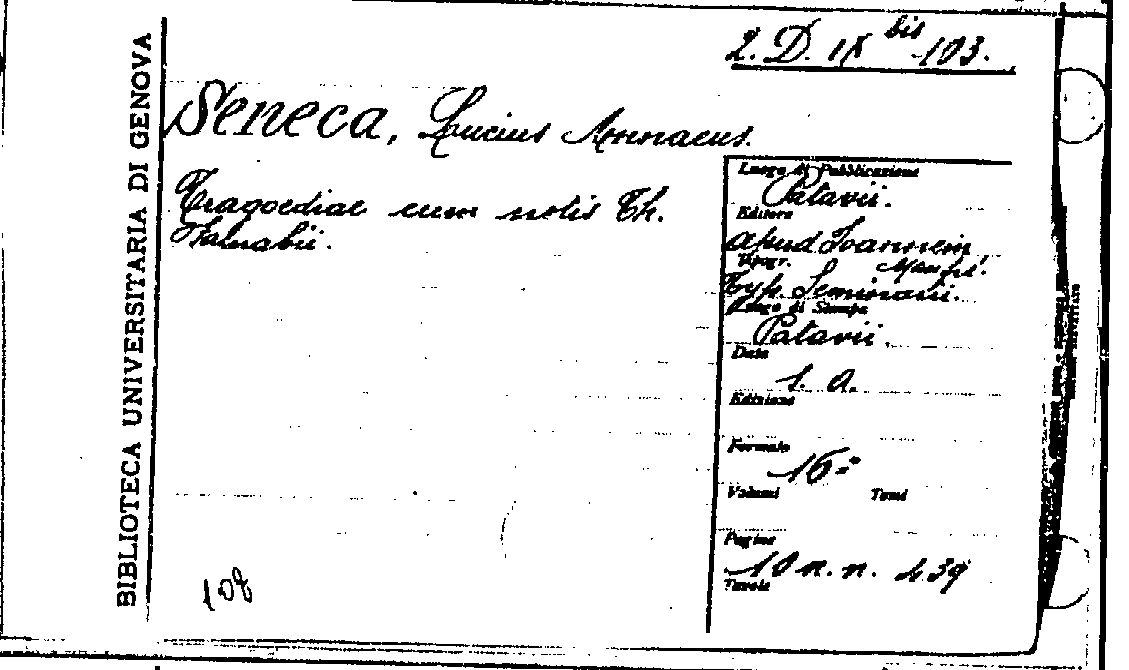 BIBLIOTECA UNIVERSITARIA DI GENOVA
2. D. IX bis 103.
Seneca, Lucius Annaeus.
Tragoediae cum notis Th.
Farnabii.
Luogo di Pubblicazione
Patavii.
Editore
apud Joannem
Manfrè.
Tipogr.
Typ. Seminarii.
Luogo di Stampa
Patavii.
Data
s. a.
Edizione
Formato
16º
Volumi Tomi
Pagine
10 n. n. 439
Tavole
108